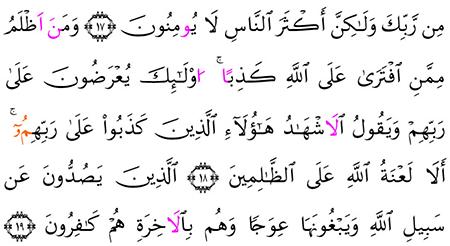 مِن رَّبِّكَ وَلَٰكِنَّ أَكْثَرَ ٱلنَّاسِ لَا يُومِنُونَ ۝١٧ وَمَنَ اَظْلَمُ
مِمَّنِ ٱفْتَرَىٰ عَلَى ٱللَّهِ كَذِبًا ۚ اُوْلَٰٓئِكَ يُعْرَضُونَ عَلَىٰ
رَبِّهِمْ وَيَقُولُ ٱلَاشْهَٰدُ هَٰٓؤُلَآءِ ٱلَّذِينَ كَذَبُوا۟ عَلَىٰ رَبِّهِمُۥٓ ۚ
أَلَا لَعْنَةُ ٱللَّهِ عَلَى ٱلظَّٰلِمِينَ ۝١٨ ٱلَّذِينَ يَصُدُّونَ عَن
سَبِيلِ ٱللَّهِ وَيَبْغُونَهَا عِوَجًا وَهُم بِٱلَاخِرَةِ هُمْ كَٰفِرُونَ ۝١٩